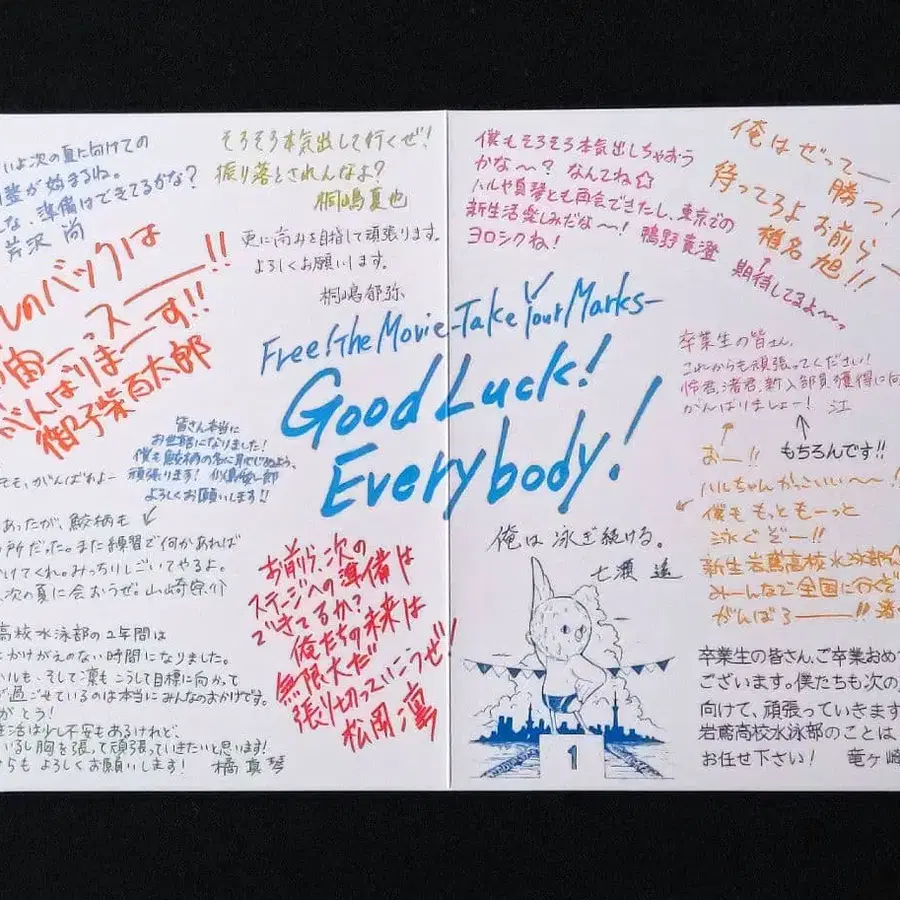 いよ次の夏に向けての
整が始まるね。
な、準備はできてるかな?
芹沢 尚
そろそろ本気出して行くぜ!
振り落とされんなよ?
桐嶋夏也
更に高みを目指して頑張ります。
よろしくお願いします。
桐嶋郁弥
しのバックは
宙ーっスー!!
がんばりまーす!!
御子柴百太郎
皆さん本当に
お世話になりました!
僕も鮫柄の名に恥じぬよう、
頑張ります! 似鳥愛一郎
よろしくお願いします!!
そも、がんばれよー
あったが、鮫柄も
所だった。また練習で何かあれば
かけてくれ。みっちりしごいてやるよ。
次の夏に会おうぜ。山崎宗介
高校水泳部の2年間は
かけがえのない時間になりました。
ハルも、そして凛もこうして目標に向かって
が過ごせているのは本当にみんなのおかげです。
がとう!
生活は少し不安もあるけれど、
いるし胸を張って頑張っていきたいと思います!
からも よろしくお願いします! 橘 真琴
お前ら、次の
ステージへの準備は
できてるか?
俺たちの未来は
無限大だ
張り切っていこうぜ!
松岡 凛
Free! the Movie -Take Your Marks-
Good Luck!
Everybody!
僕もそろそろ本気出しちゃおう
かな〜? なんてね☆
ハルや真琴とも再会できたし、東京での
新生活楽しみだな〜! 鴫野貴澄
ヨロシクね!
俺はぜってー
勝つ!
待ってろよ お前らー
椎名 旭!!
↑
期待してるよ〜っ
卒業生の皆さん、
これからも頑張ってください!
怜君、渚君、新入部員獲得に向
がんばりましょー! 江
おー!!
もちろんです!!
ハルちゃんかっこいい〜!
僕ももっともーっと
泳ぐぞー!!
新生岩鳶高校水泳部
みーんなで全国に行くぞ
がんばろー!! 渚
俺は 泳ぎ続ける。
七瀬 遙
1
卒業生の皆さん、ご卒業おめ
ございます。僕たちも次の
向けて、頑張っていきます
岩鳶高校水泳部のことは
お任せ下さい! 竜ヶ崎